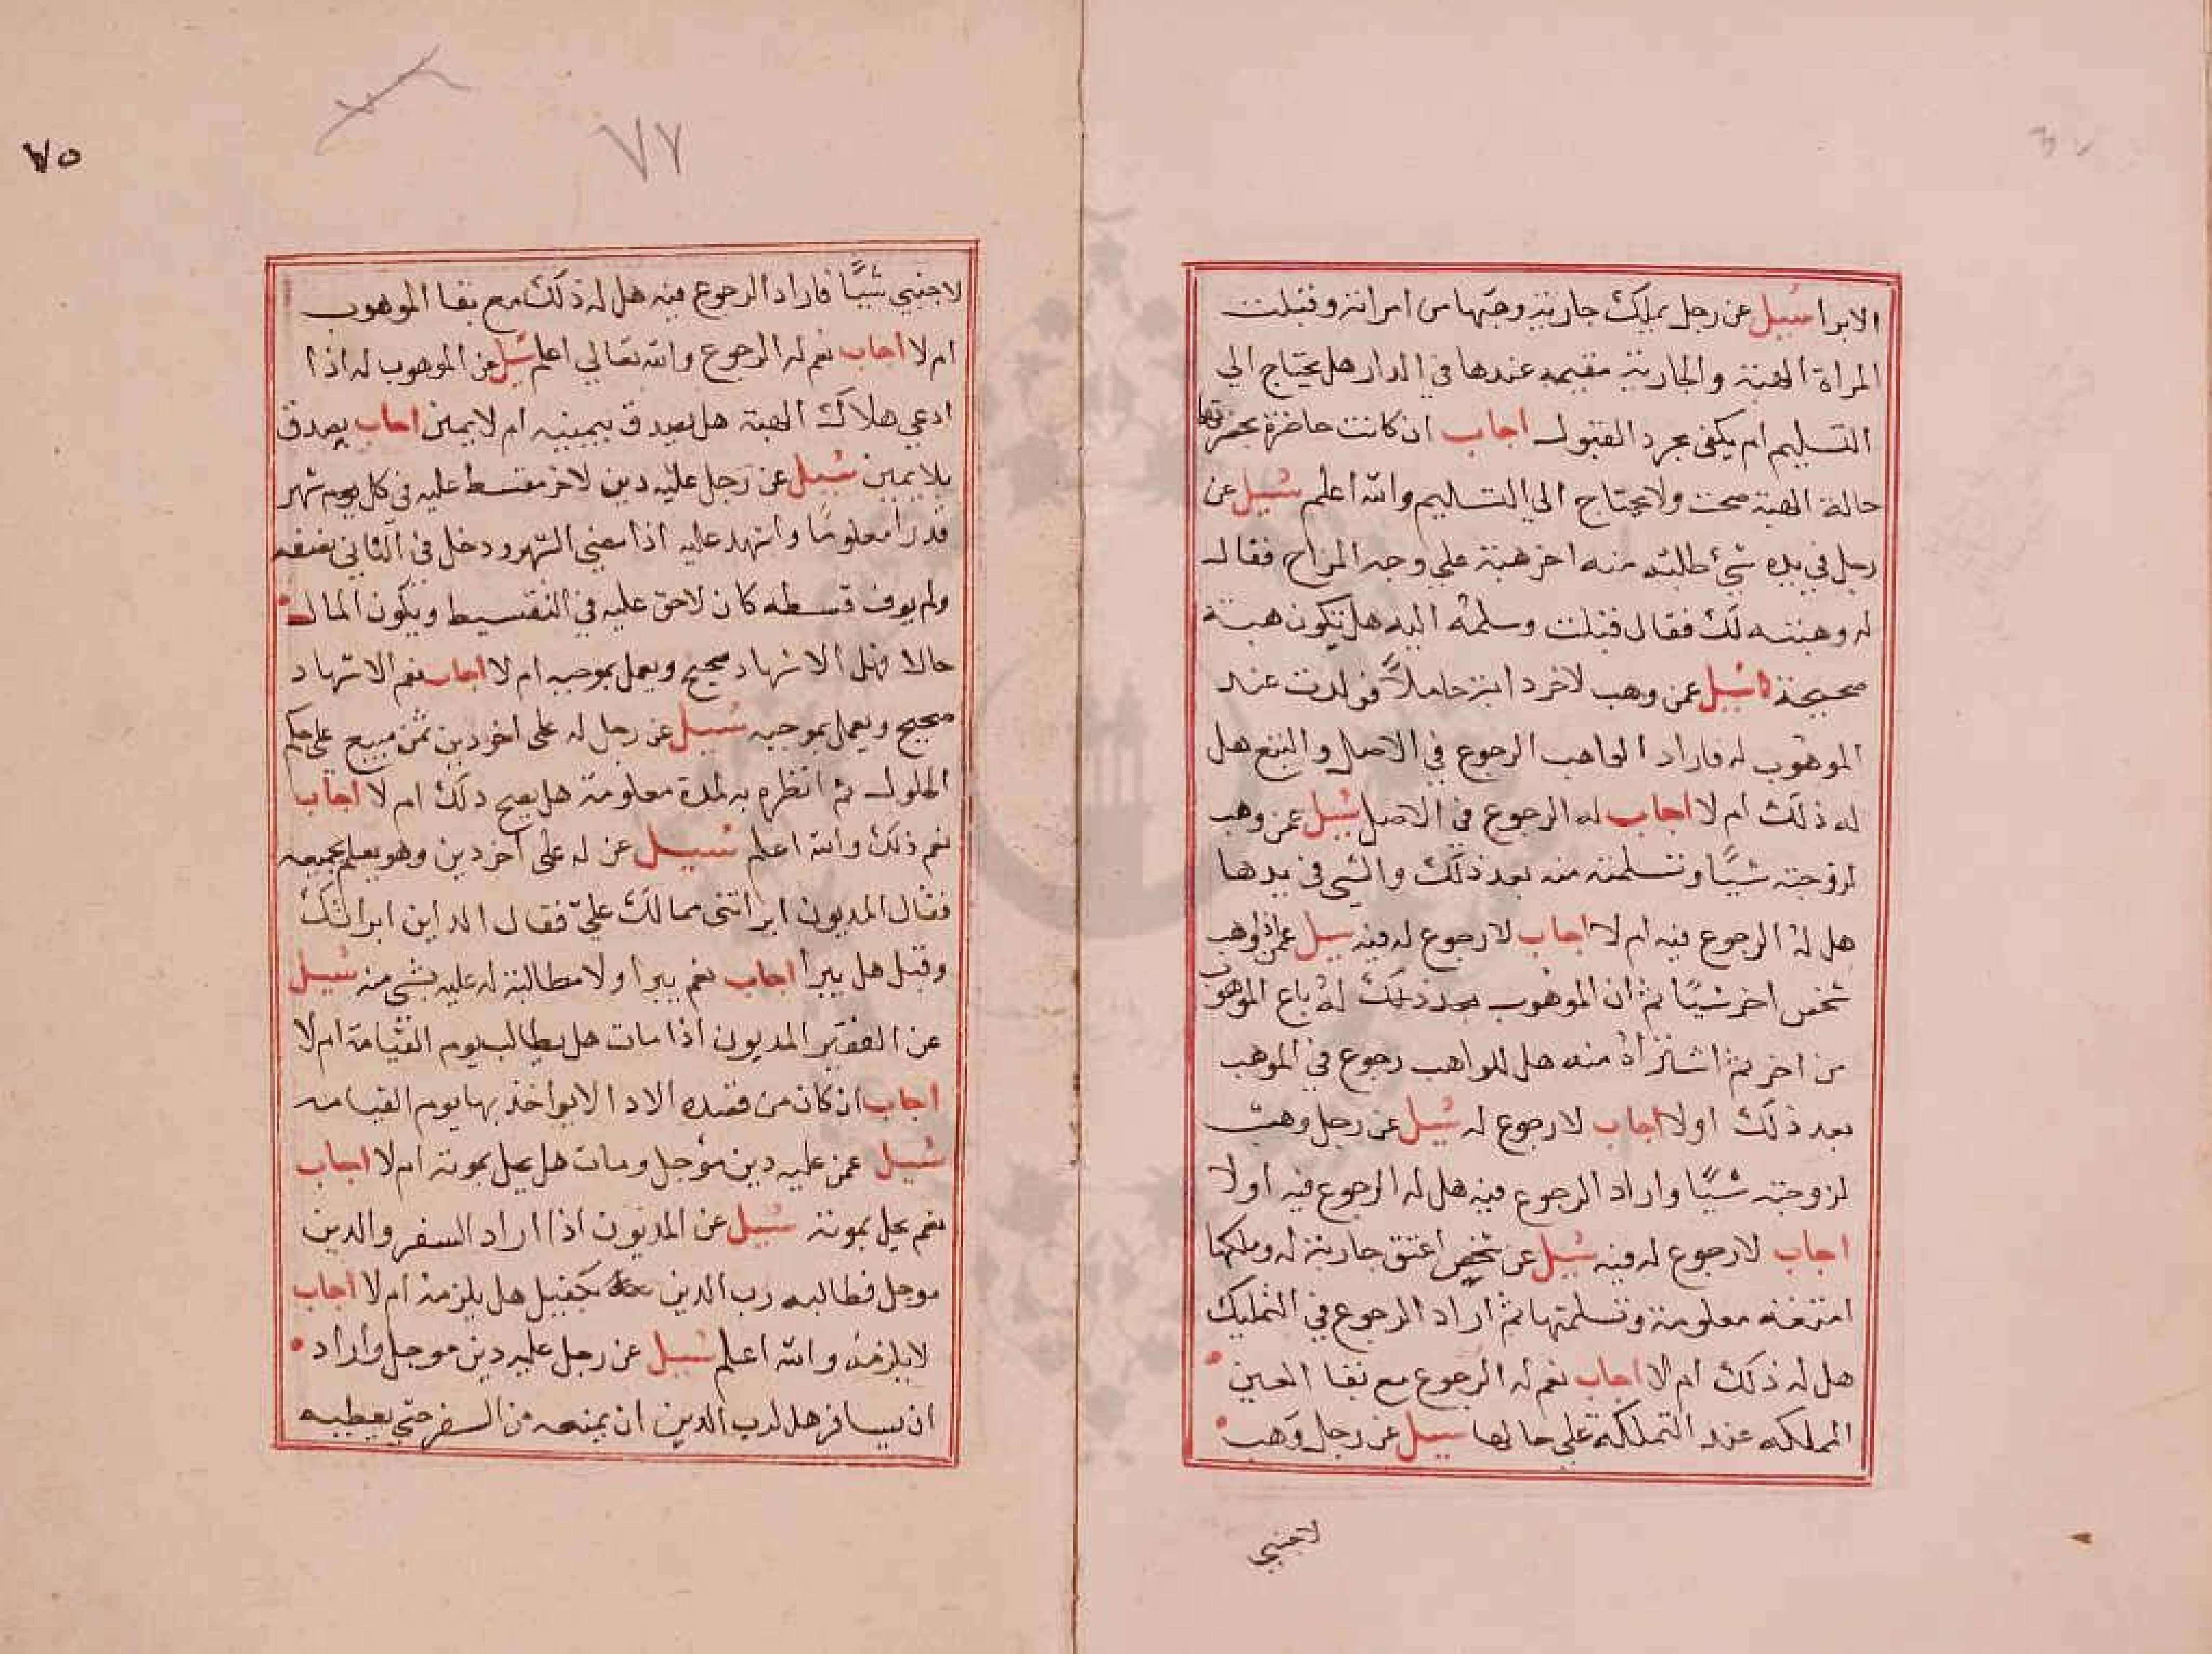 الابرا سيل عن رجل يملك جارية وهبها من امراته وقبلت
المراة الهبة والجارية مقيمه عندها في الدار هل يحتاج الي
التسليم ام يكفى مجرد القبول اجاب ان كانت حاضرة بحضرتها
حالة الهبة صحت ولا يحتاج الي التسليم والله اعلم سيل عن
رجل في يده شي طالبه منه اخر هبة علي وجه المزاح فقال
له وهبته لك فقال قبلت وسلمه اليه هل تكون هبة
صحيحة سيل عمن وهب لاخر دابة حاملا فولدت عند
الموهوب له فاراد الواهب الرجوع في الاصل والتبع هل
له ذلك ام لا اجاب له الرجوع في الاصل سيل عمن وهب
لزوجته شيا وتسلمته منه بعد ذلك والشي في يدها
هل له الرجوع فيه ام لا اجاب لا رجوع له فيه سيل عمن وهب
شخص اخر شيا ثم ان الموهوب بعد ذلك له باع الموهوب
من اخر ثم اشتراه منه هل للواهب رجوع في الموهب
بعد ذلك اولا اجاب لا رجوع له سيل عن رجل وهب
لزوجته شيا واراد الرجوع فيه هل له الرجوع فيه اولا
اجاب لا رجوع له فيه سيل عن شخص اعتق جارية له وملكها
امتعته معلومة وتسلمتها ثم اراد الرجوع في التمليك
هل له ذلك ام لا اجاب نعم له الرجوع مع بقا العين
المملكه عند التملكة علي حالها سيل عن رجل وهب
لاجنبي
٧٥
٧٢
لاجنبي شيا فاراد الرجوع فيه هل له ذلك مع بقا الموهوب
ام لا اجاب نعم له الرجوع والله تعالي اعلم سيل عن الموهوب له اذا
ادعي هلاك الهبة هل يصدق بيمينه ام لا يمين اجاب يصدق
بلا يمين سيل عن رجل عليه دين لاخر مقسط عليه في كل يوم شهر
قدرا معلوما واشهد عليه اذا مضي الشهر ودخل في الثاني نصفه
ولم يوف قسطه كان لاحق عليه في التقسيط ويكون المال
حالا فهل الاشهاد صحيح ويعمل بموجبه ام لا اجاب نعم الاشهاد
صحيح ويعمل بموجبه سيل عن رجل له على اخر دين ثمن مبيع على حكم
الحلول ثم انظره به لمدة معلومة هل يصح ذلك ام لا اجاب
نعم ذلك والله اعلم سيل عن له على آخر دين وهو يعلم بجميعه
فقال المديون ابراتنى مما لك عليّ فقال الداين ابراتك
وقبل هل يبرا اجاب نعم يبرا ولا مطالبة له عليه بشي منه سيل
عن الفقير المديون اذا مات هل يطالب يوم القيامة ام لا
اجاب ان كان من قصده الادا لا يواخذ بها يوم القيامه
سيل عمن عليه دين مؤجل ومات هل يحل بموته ام لا اجاب
نعم يحل بموته سيل عن المديون اذا اراد السفر والدين
موجل فطالبه رب الدين بكفيل هل يلزمه ام لا اجاب
لا يلزمه والله اعلم سيل عن رجل عليه دين موجل واراد
ان يسافر هل لرب الدين ان يمنعه من السفر حتي يعطيه